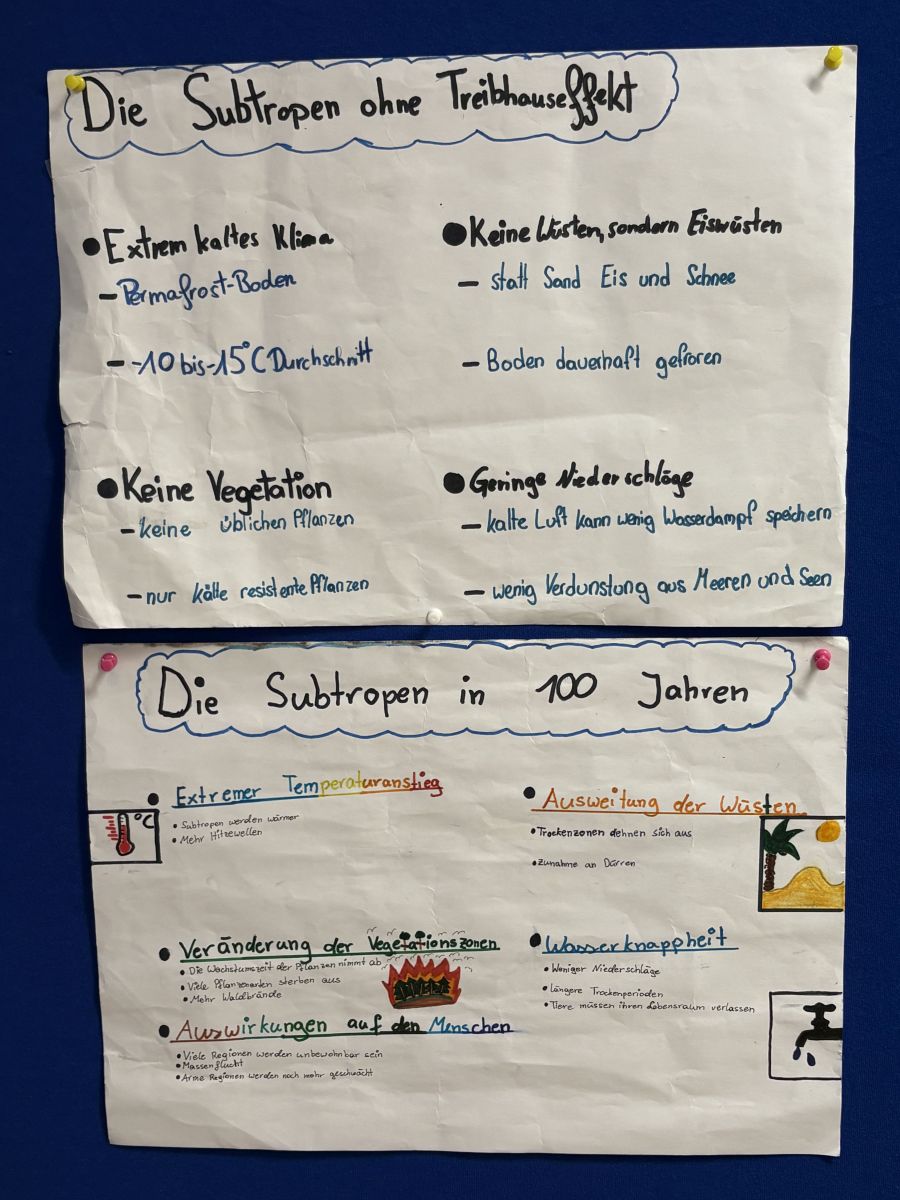 Die Subtropen ohne Treibhauseffekt
Extrem kaltes Klima
- Permafrost-Boden
- -10 bis -15°C Durchschnitt
Keine Wüsten, sondern Eiswüsten
- statt Sand Eis und Schnee
- Boden dauerhaft gefroren
Keine Vegetation
- keine üblichen Pflanzen
- nur kälte resistente Pflanzen
Geringe Niederschläge
- kalte Luft kann wenig Wasserdampf speichern
- wenig Verdunstung aus Meeren und Seen
Die Subtropen in 100 Jahren
Extremer Temperaturanstieg
• Subtropen werden wärmer
• Mehr Hitzewellen
°C
Ausweitung der Wüsten
• Trockenzonen dehnen sich aus
• Zunahme an Dürren
Veränderung der Vegetationszonen
• Die Wachstumszeit der Pflanzen nimmt ab
• Viele Pflanzenarten sterben aus
• Mehr Waldbrände
Wasserknappheit
• Weniger Niederschläge
• längere Trockenperioden
• Tiere müssen ihren Lebensraum verlassen
Auswirkungen auf den Menschen
• Viele Regionen werden unbewohnbar sein
• Massenflucht
• Arme Regionen werden noch mehr geschwächt